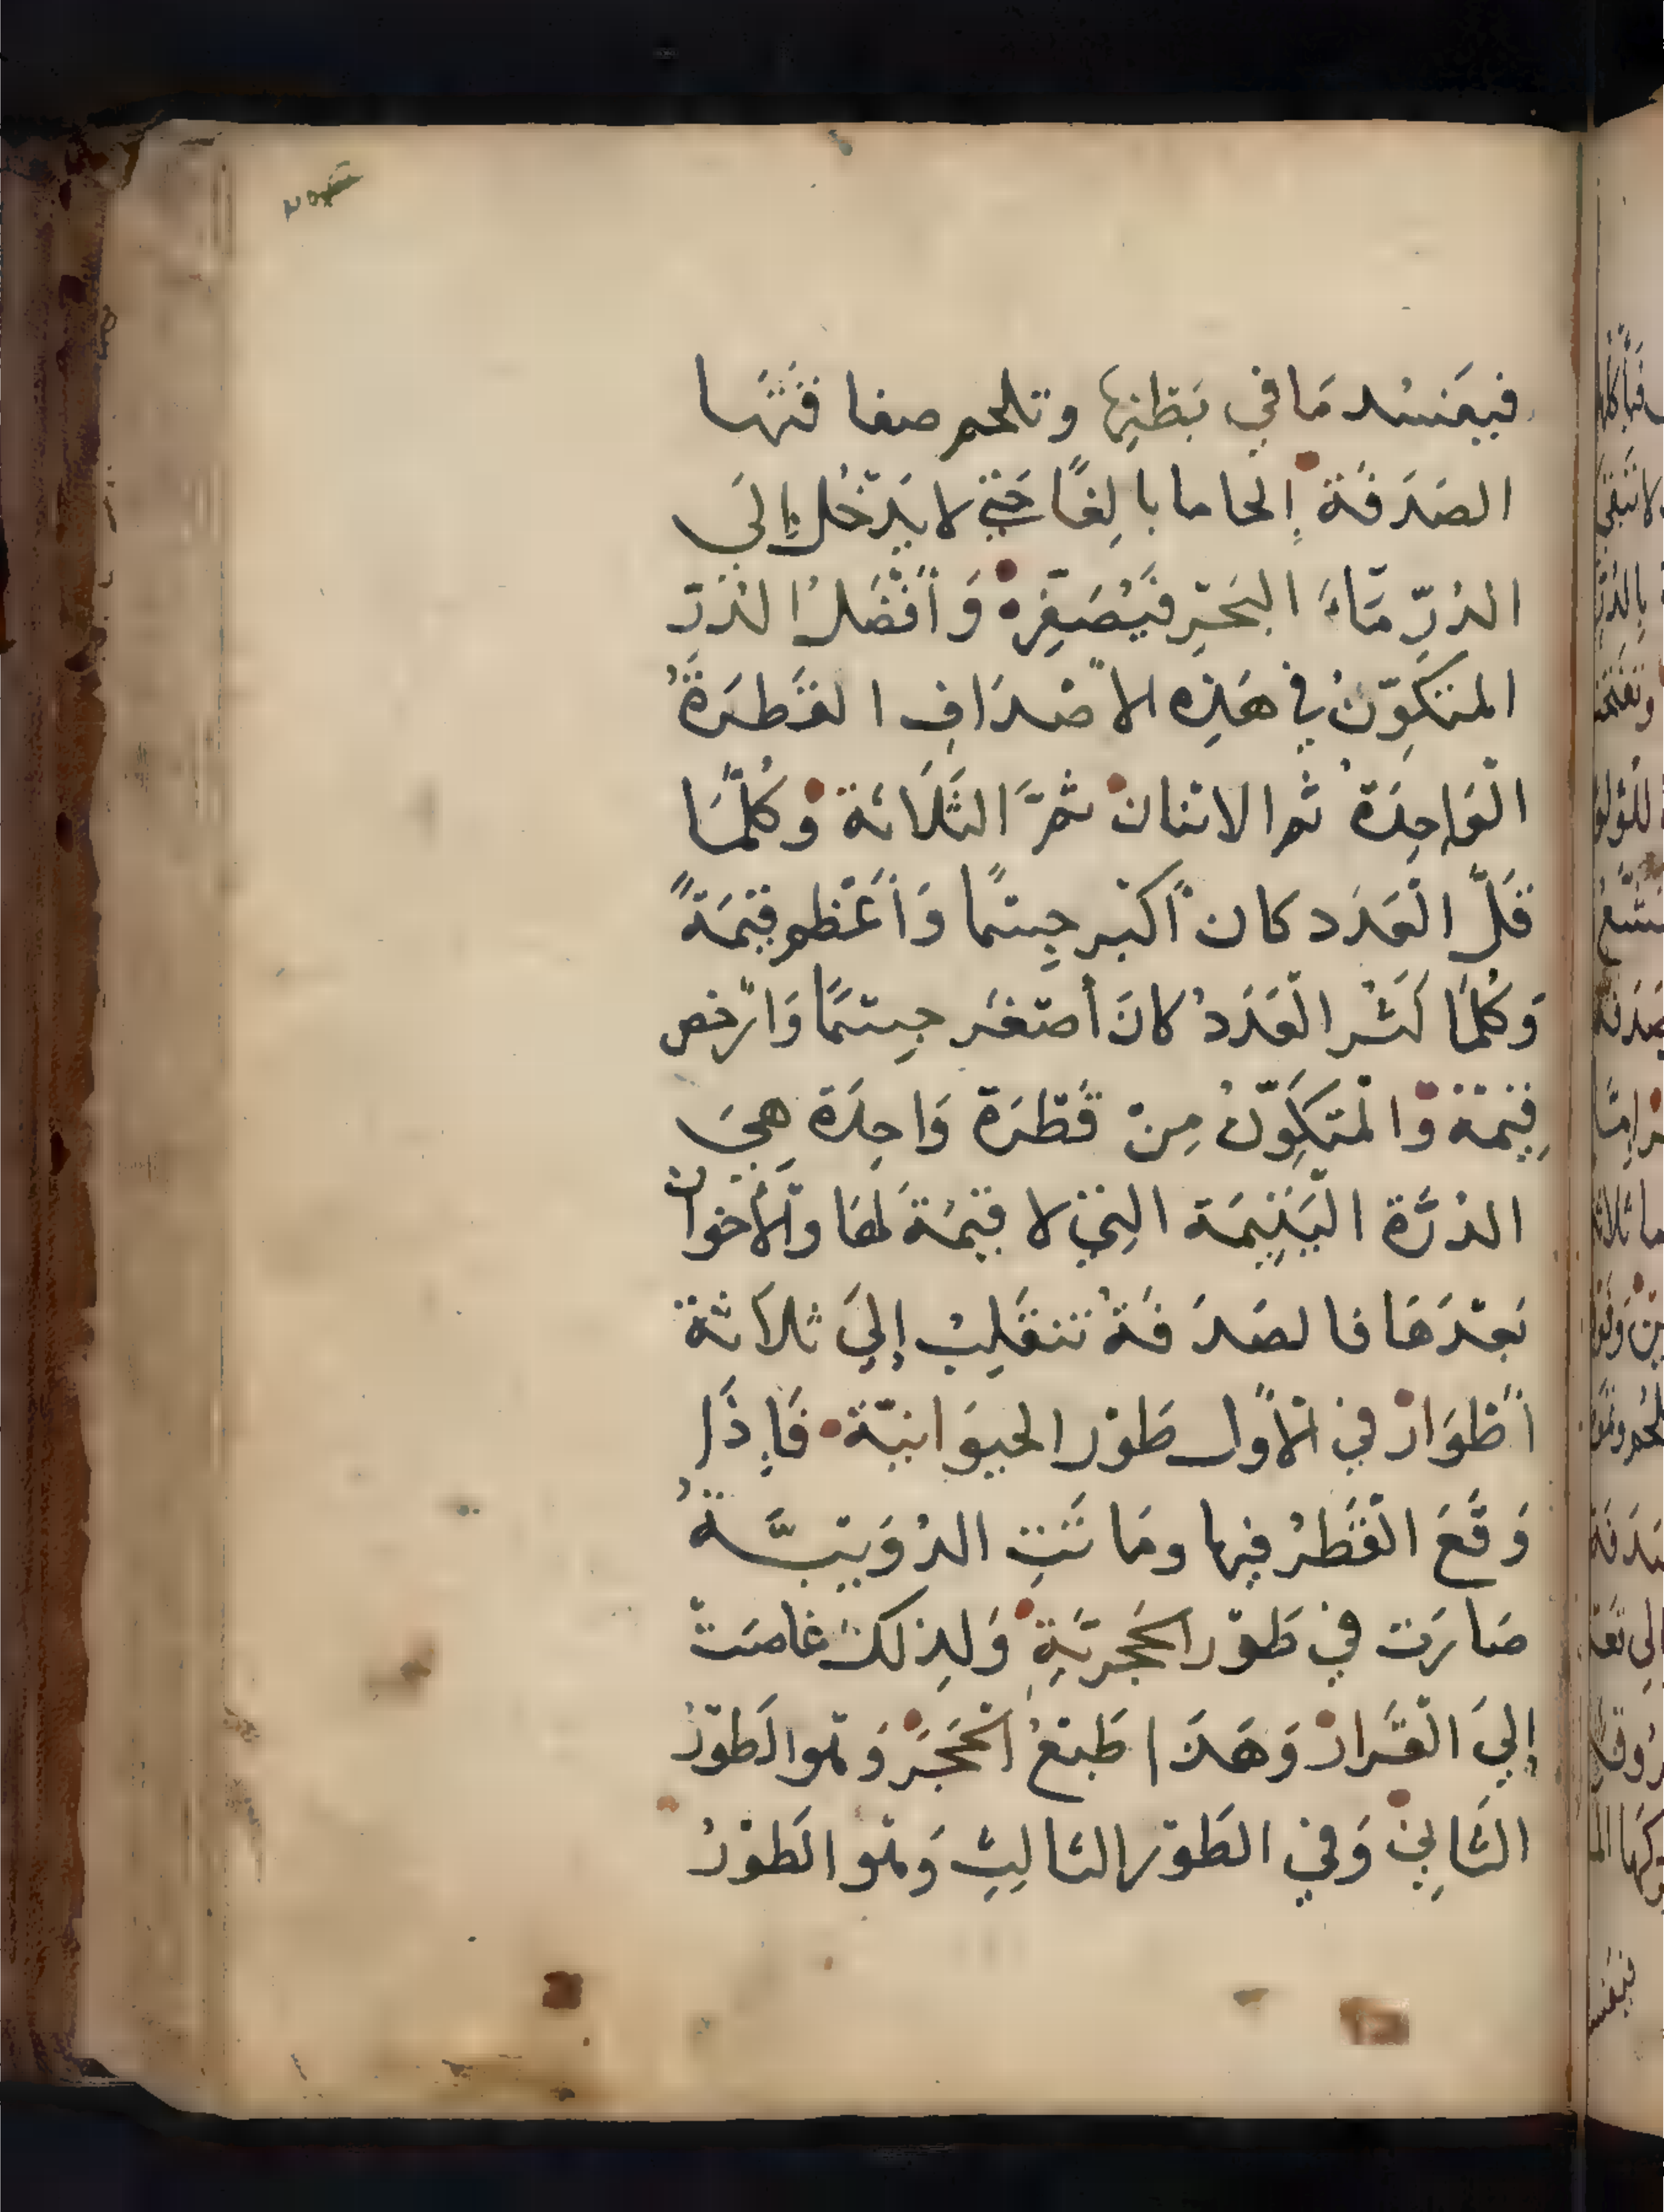 فيفسُد مَا في بَطْنِها وتلحم صفا فَتَها
الصَدَفَة إِلحاما بالِغًا حَتي لا يَدْخُل إِلَي
الدُرِّ مَاءُ البَحْرِ فَيُصَفِّرهْ وَأَفْضَلُ الدُرّ
المتَكَوِّنُ في هَذِه الأصْدَافِ القَطرَةُ
الْوَاحِدَةُ ثم الاثنانْ ثمَّ الثَلَاثة وَكُلَّمَا
قَلَّ الْعَدَد كان أكْبر جِسْمًا وَأَعْظم قيمَةً
وَكُلَمَا كَثُر الْعَدَدُ كانَ أصْغَر جِسْمًا وَأرْخص
قِيْمَة وَالْمتَكَوِّنُ مِنْ قَطْرَة وَاحِدَة هِيَ
الدُرَّة اليَتِيمَة التِي لا قيمَةَ لهَا وَالأخوان
بَعْدَهَا فالصَدَفَةُ تنقَلِبُ إِليَ ثلاَثة
أطْوَارْ في الْأوّل طَوْر الحيوَانيّة فَإِذَا
وَقَعَ الْقَطْرُ فيها ومَا تَتِ الدُوَيْبَّــةُ
صَارَت في طَوْر الحَجريَّةِ وَلِذلكَ غاصَتْ
إِليَ الْقَرارْ وَهَذَا طَبْعُ الْحَجَرْ وَهو الَطوْرُ
الثَانِيْ وَفي الطَوْر الثالِثِ وَهو الَطوْرُ